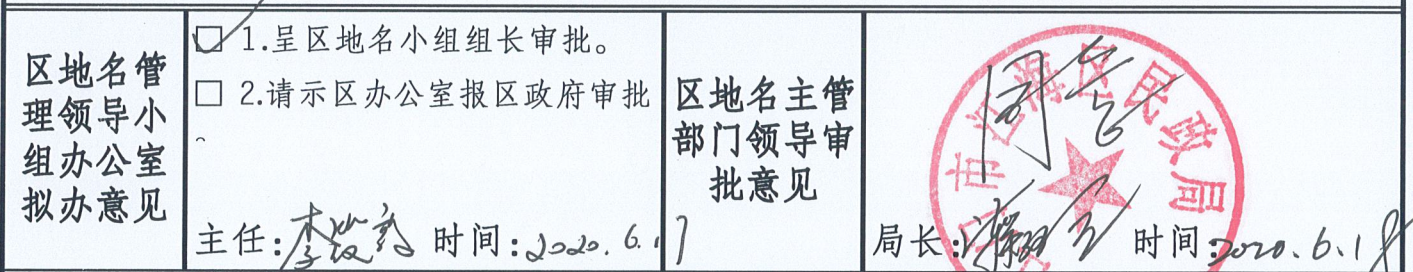 区地名管
理领导小
组办公室
拟办意见
□ 1.呈区地名小组组长审批。
□ 2.请示区办公室报区政府审批
。
主任: 时间:2020.6.17
区地名主管
部门领导审
批意见
同意
市江海区民政局
局长: 时间:2020.6.18